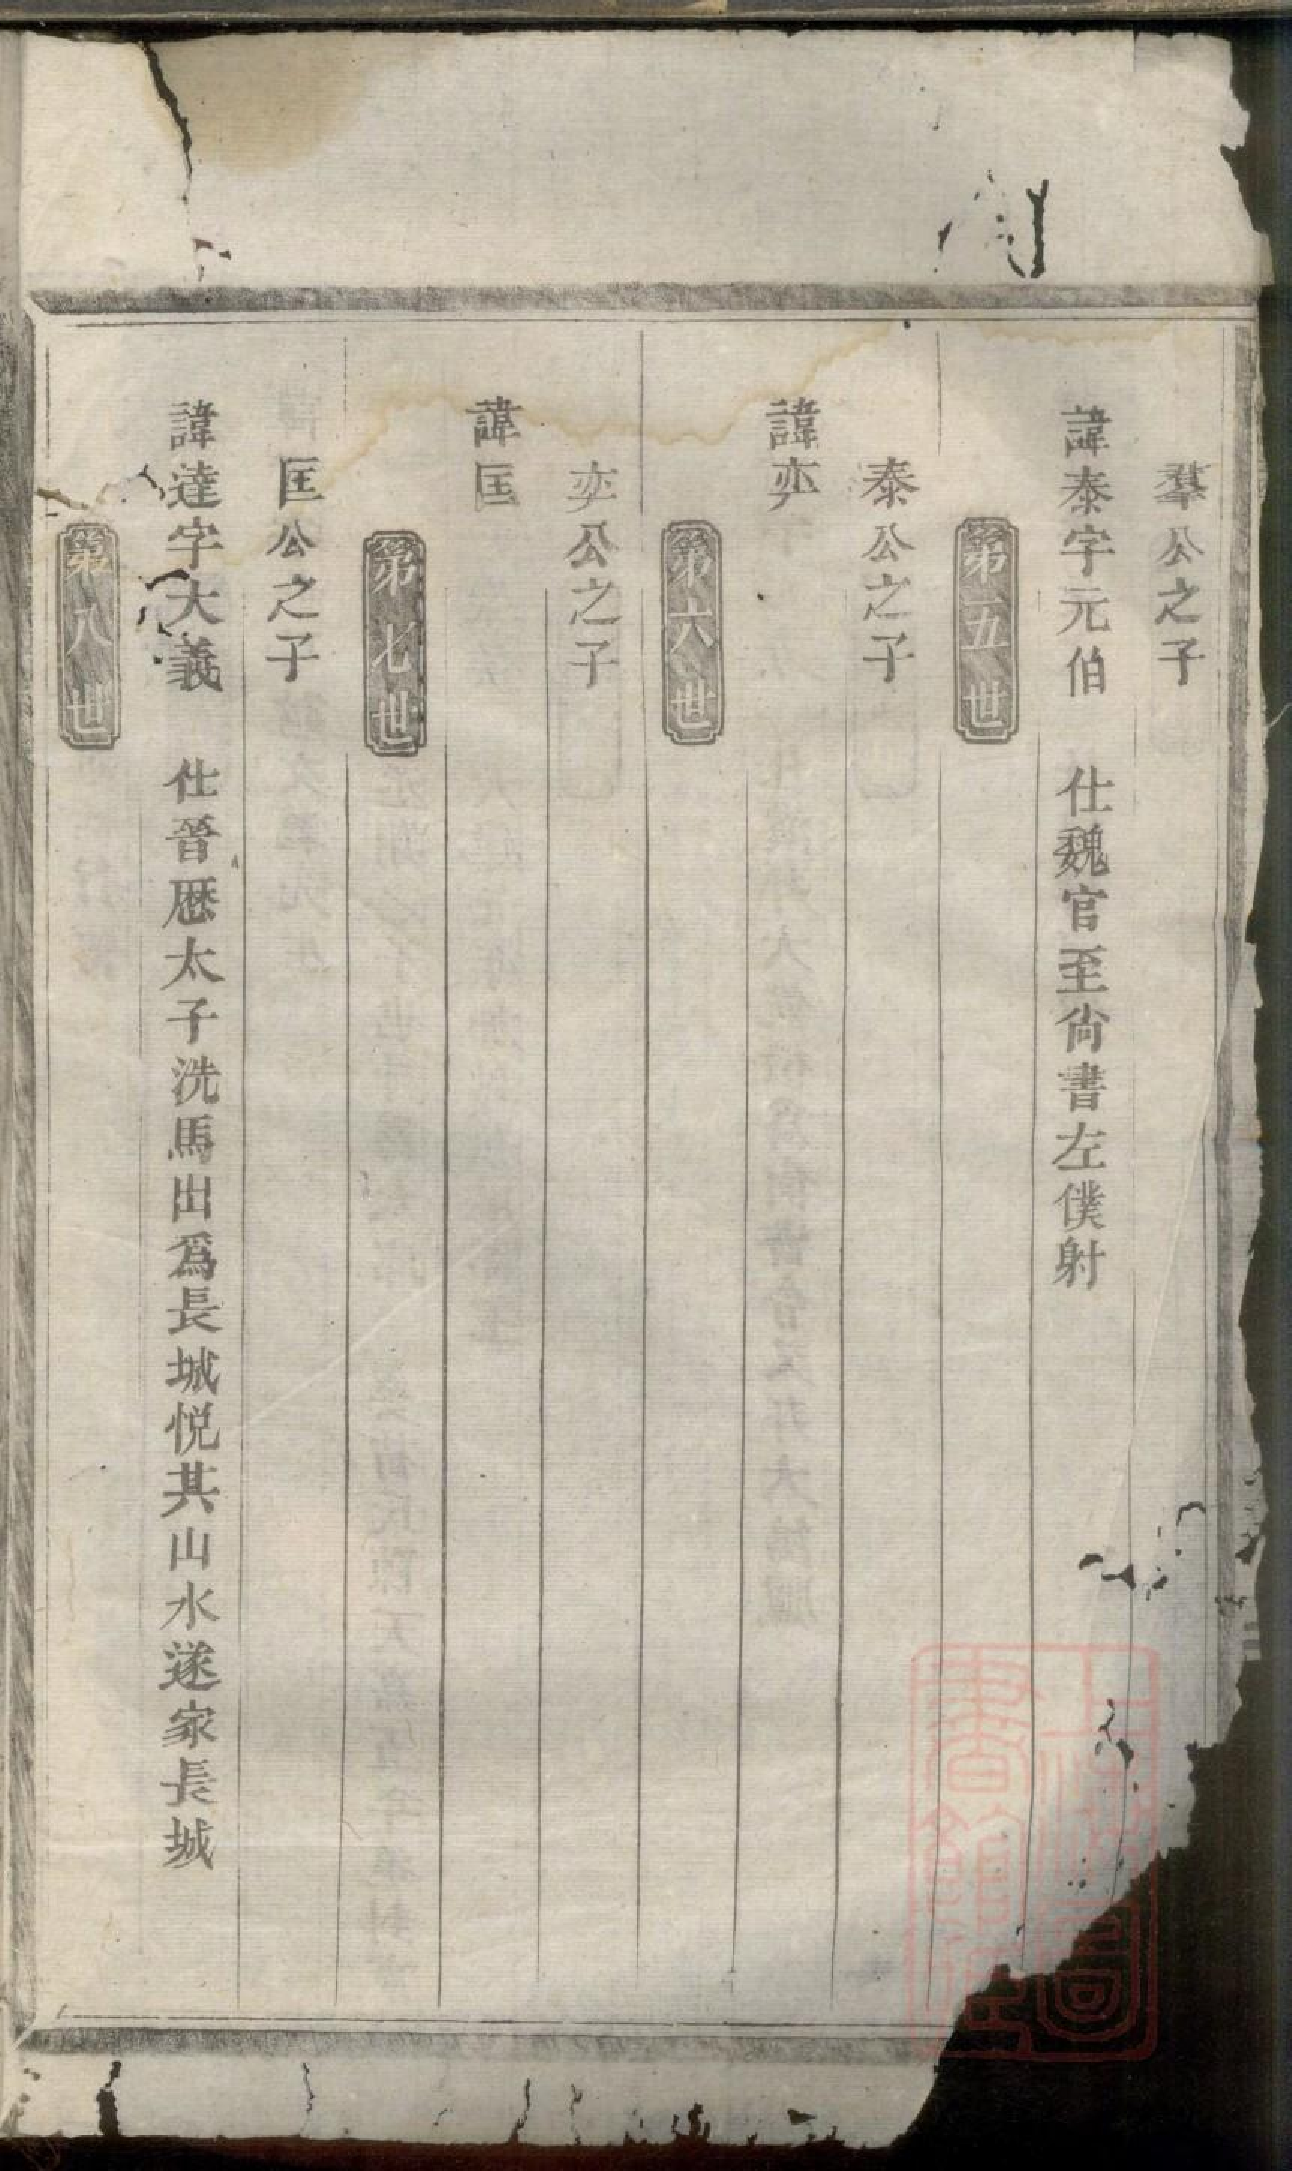 羣公之子
諱泰字元伯　仕魏官至尙書左僕射
第五世
泰公之子
諱奕
第六世
奕公之子
諱匡
第七世
匡公之子
諱達字大義　仕晉厯太子洗馬出爲長城悦其山水遂家長城
第八世